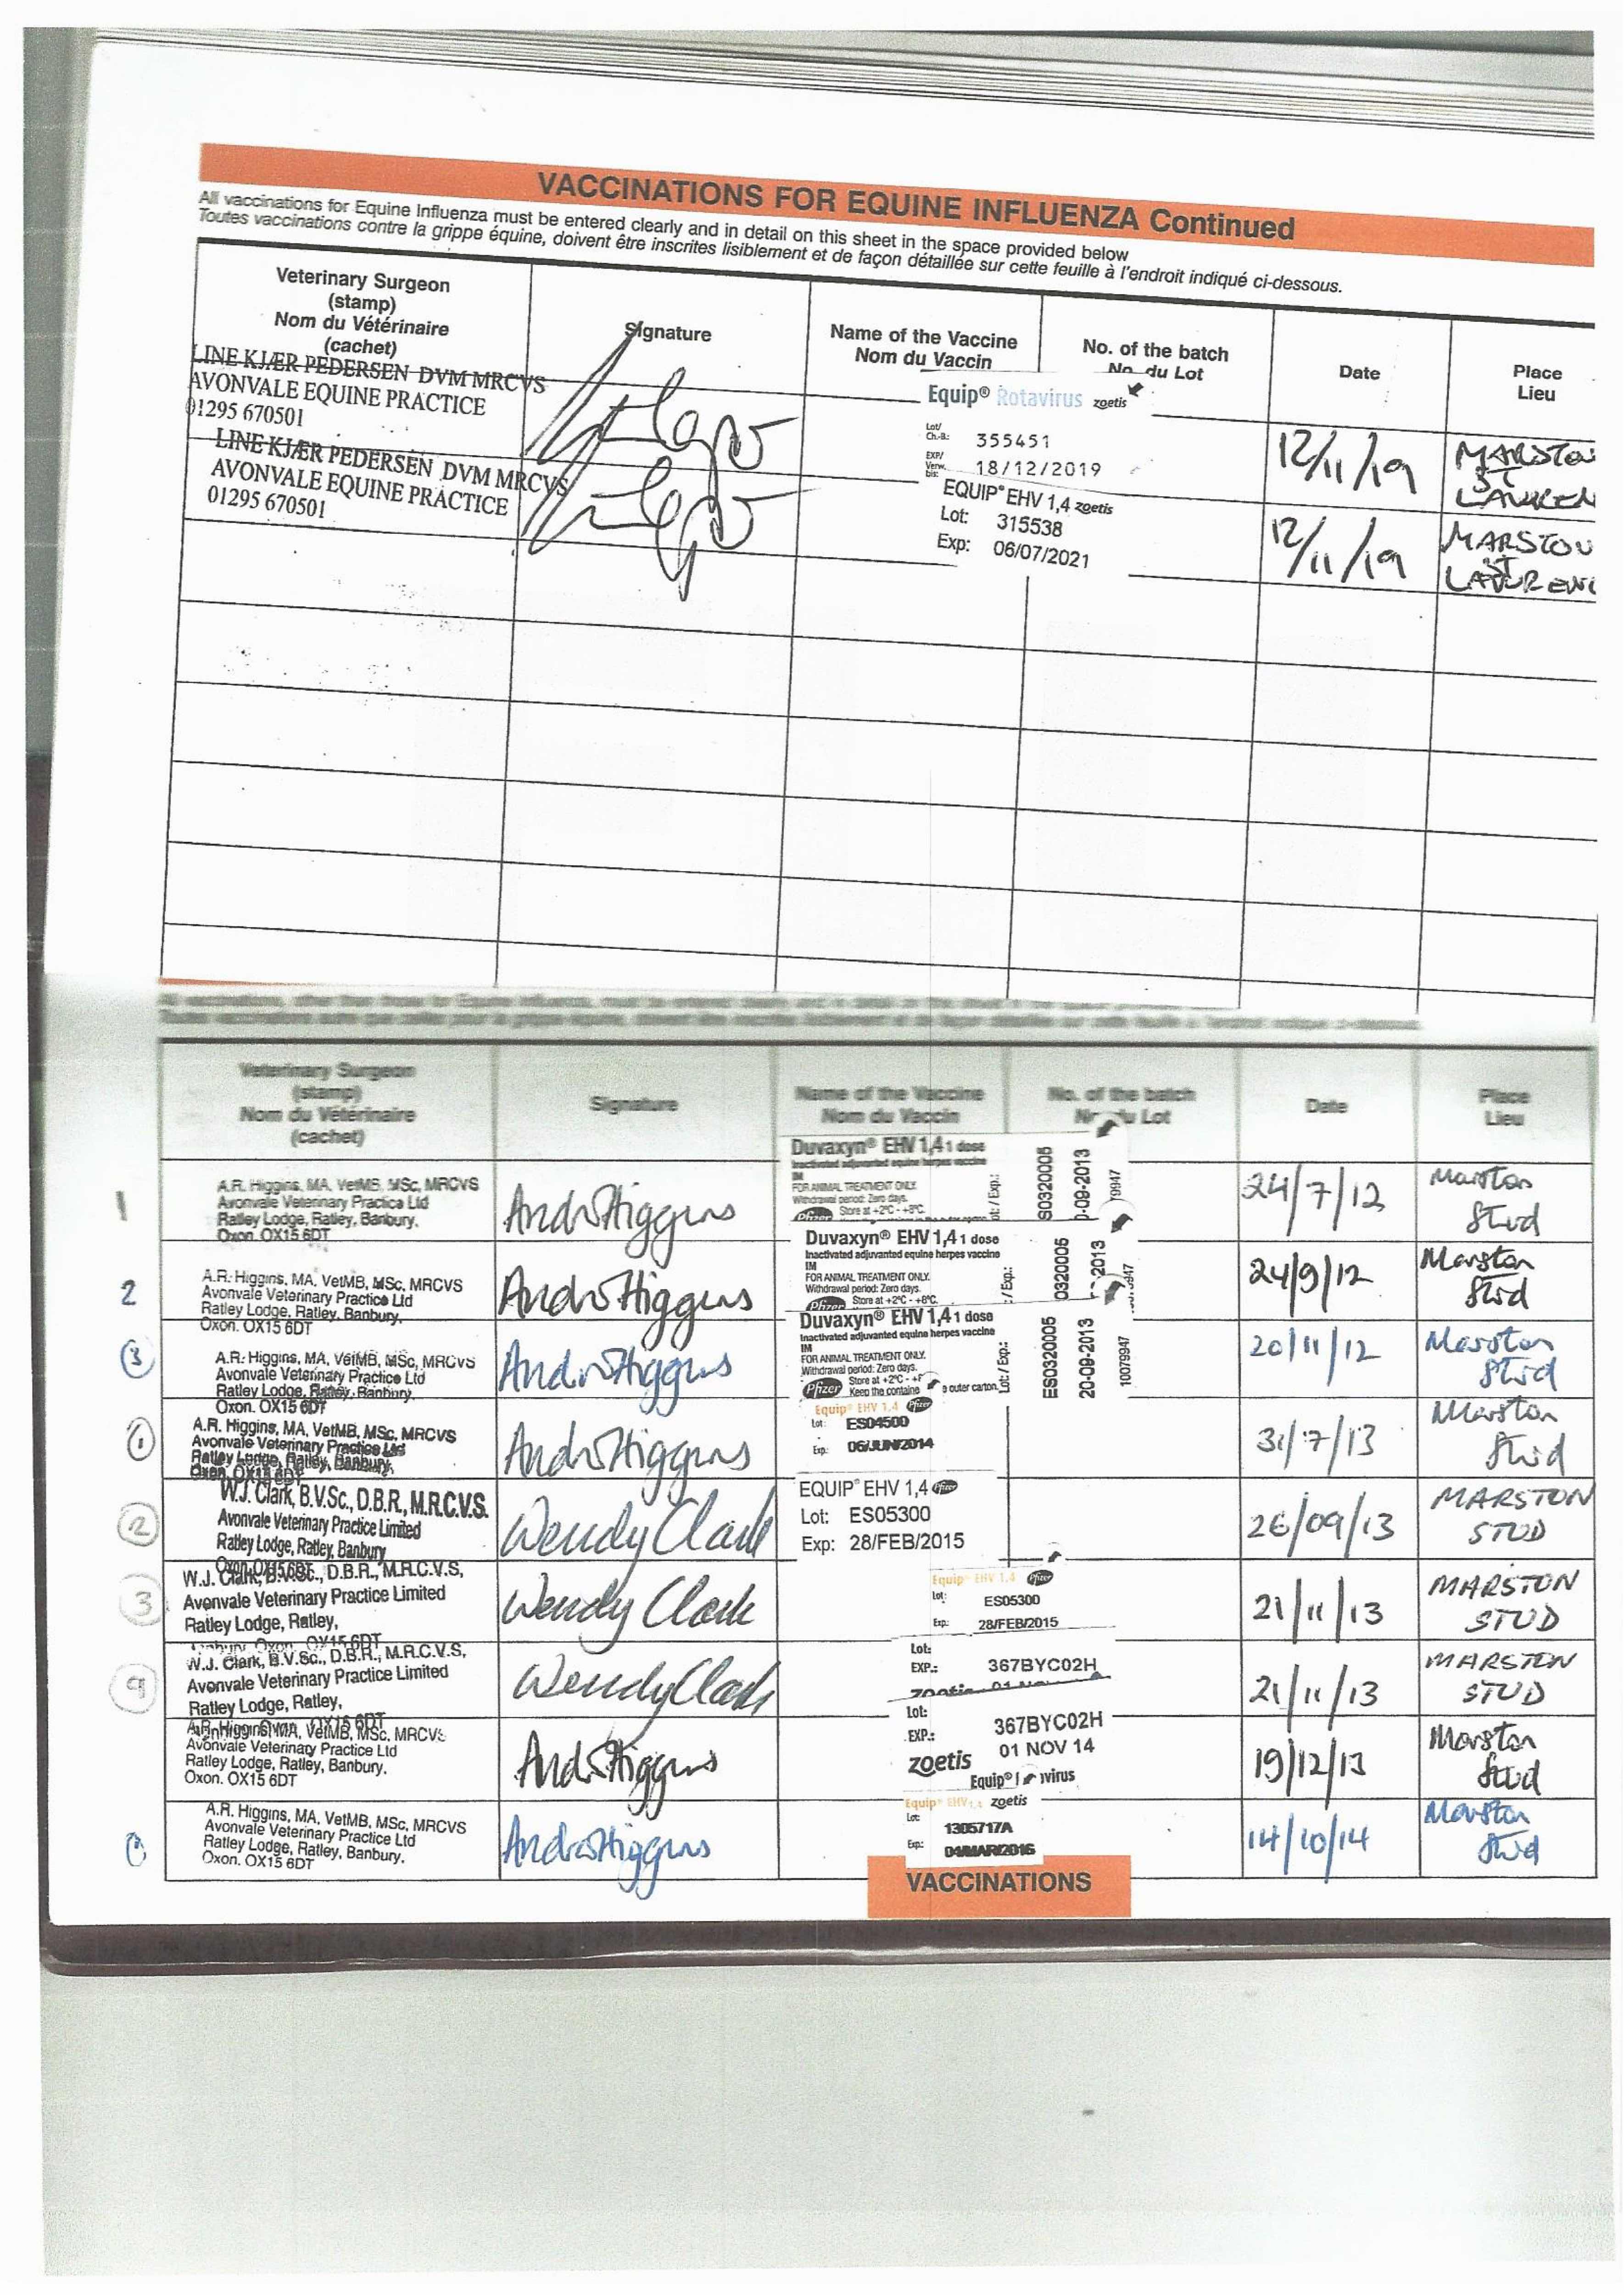 VACCINATIONS FOR EQUINE INFLUENZA Continued
All vaccinations for Equine Influenza must be entered clearly and in detail on this sheet in the space provided below
Toutes vaccinations contre la grippe équine, doivent être inscrites lisiblement et de façon détaillée sur cette feuille à l'endroit indiqué ci-dessous.
Veterinary Surgeon
(stamp)
Nom du Vétérinaire
(cachet)
Signature
Name of the Vaccine
Nom du Vaccin
No. of the batch
No. du Lot
Date
Place
Lieu
LINE KJÆR PEDERSEN DVM MRCVS
AVONVALE EQUINE PRACTICE
01295 670501
Equip® Rotavirus zoetis
Lot/
Ch.-B.: 355451
EXP/
Verw. bis: 18/12/2019
12/11/19
MARSTON
ST
LAUREN
LINE KJÆR PEDERSEN DVM MRCVS
AVONVALE EQUINE PRACTICE
01295 670501
EQUIP® EHV 1,4 zoetis
Lot: 315538
Exp: 06/07/2021
12/11/19
MARSTON
ST
LAURENC
Veterinary Surgeon
(stamp)
Nom du Vétérinaire
(cachet)
Signature
Name of the Vaccine
Nom du Vaccin
No. of the batch
No. du Lot
Date
Place
Lieu
1
A.R. Higgins, MA, VetMB, MSc, MRCVS
Avonvale Veterinary Practice Ltd
Ratley Lodge, Ratley, Banbury,
Oxon. OX15 6DT
Andr Higgins
Duvaxyn® EHV 1,4 1 dose
Inactivated adjuvanted equine herpes vaccine
IM
FOR ANIMAL TREATMENT ONLY.
Withdrawal period: Zero days.
Pfizer Store at +2°C - +8°C.
ot: / Exp.:
S0320005
0-09-2013
79947
24/7/12
Marston
Stud
2
A.R. Higgins, MA, VetMB, MSc, MRCVS
Avonvale Veterinary Practice Ltd
Ratley Lodge, Ratley, Banbury,
Oxon. OX15 6DT
Andr Higgins
Duvaxyn® EHV 1,4 1 dose
Inactivated adjuvanted equine herpes vaccine
IM
FOR ANIMAL TREATMENT ONLY.
Withdrawal period: Zero days.
Pfizer Store at +2°C - +8°C.
: / Exp.:
0320005
-2013
24/9/12
Marston
Stud
3
A.R. Higgins, MA, VetMB, MSc, MRCVS
Avonvale Veterinary Practice Ltd
Ratley Lodge, Ratley, Banbury,
Oxon. OX15 6DT
Andr Higgins
Duvaxyn® EHV 1,4 1 dose
Inactivated adjuvanted equine herpes vaccine
IM
FOR ANIMAL TREATMENT ONLY.
Withdrawal period: Zero days.
Store at +2°C - +
Pfizer Keep the containe outer carton.
Lot: / Exp.:
ES0320005
20-09-2013
10079947
20/11/12
Marston
Stud
1
A.R. Higgins, MA, VetMB, MSc, MRCVS
Avonvale Veterinary Practice Ltd
Ratley Lodge, Ratley, Banbury,
Oxon. OX15 6DT
Andr Higgins
Equip® EHV 1,4 Pfizer
Lot: ES04500
Exp.: 06/JUN/2014
31/7/13
Marston
Stud
2
W.J. Clark, B.V.Sc., D.B.R., M.R.C.V.S.
Avonvale Veterinary Practice Limited
Ratley Lodge, Ratley, Banbury
Oxon OX15 6DT
Wendy Clark
EQUIP® EHV 1,4 Pfizer
Lot: ES05300
Exp: 28/FEB/2015
26/09/13
MARSTON
STUD
3
W.J. Clark, B.V.Sc., D.B.R., M.R.C.V.S,
Avonvale Veterinary Practice Limited
Ratley Lodge, Ratley,
Banbury Oxon OX15 6DT
Wendy Clark
Equip® EHV 1,4 Pfizer
Lot: ES05300
Exp.: 28/FEB/2015
21/11/13
MARSTON
STUD
9
W.J. Clark, B.V.Sc., D.B.R., M.R.C.V.S,
Avonvale Veterinary Practice Limited
Ratley Lodge, Ratley,
Wendy Clark
Lot:
EXP.: 367BYC02H
zoetis 01 NOV
21/11/13
MARSTON
STUD
A.R. Higgins, MA, VetMB, MSc, MRCVS
Avonvale Veterinary Practice Ltd
Ratley Lodge, Ratley, Banbury,
Oxon. OX15 6DT
Andr Higgins
Lot:
EXP.: 367BYC02H
zoetis 01 NOV 14
Equip® virus
19/12/13
Marston
Stud
A.R. Higgins, MA, VetMB, MSc, MRCVS
Avonvale Veterinary Practice Ltd
Ratley Lodge, Ratley, Banbury,
Oxon. OX15 6DT
Andr Higgins
Equip® EHV 1,4 zoetis
Lot: 1305717A
Exp: 04/MAR/2016
14/10/14
Marston
Stud
VACCINATIONS